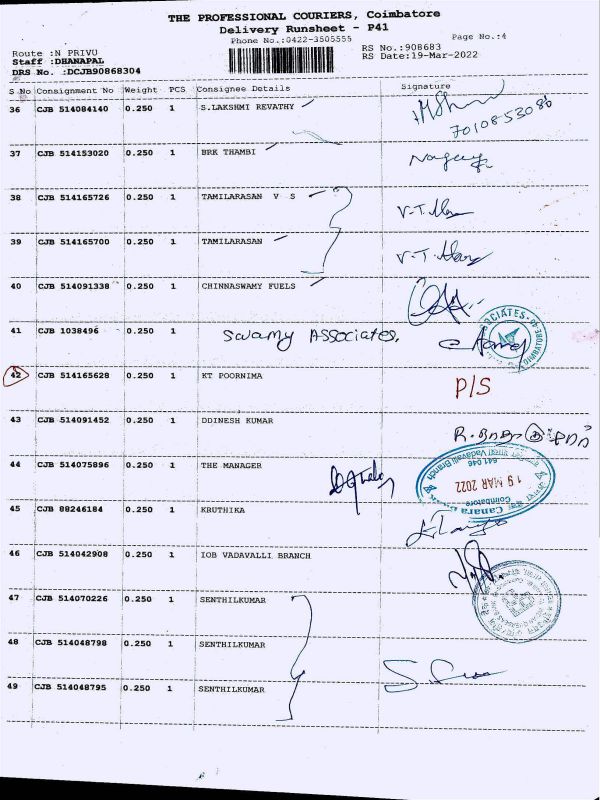 THE PROFESSIONAL COURIERS, Coimbatore
Delivery Runsheet - P41
Phone No.:0422-3505555
Page No.:4
Route :N PRIVU
RS No.:908683
Staff :DHANAPAL
RS Date:19-Mar-2022
DRS No. :DCJB90868304
S No Consignment No Weight PCS Consignee Details Signature
36 CJB 514084140 0.250 1 S.LAKSHMI REVATHY
7010853086
37 CJB 514153020 0.250 1 BRK THAMBI
38 CJB 514165726 0.250 1 TAMILARASAN V S
39 CJB 514165700 0.250 1 TAMILARASAN
40 CJB 514091338 0.250 1 CHINNASWAMY FUELS
41 CJB 1038496 0.250 1 Swamy Associates.
42 CJB 514165628 0.250 1 KT POORNIMA P/S
43 CJB 514091452 0.250 1 DDINESH KUMAR
44 CJB 514075896 0.250 1 THE MANAGER
Vadavalli Branch
641 046
19 MAR 2022
Coimbatore
Canara
45 CJB 88246184 0.250 1 KRUTHIKA
46 CJB 514042908 0.250 1 IOB VADAVALLI BRANCH
47 CJB 514070226 0.250 1 SENTHILKUMAR
48 CJB 514048798 0.250 1 SENTHILKUMAR
49 CJB 514048795 0.250 1 SENTHILKUMAR